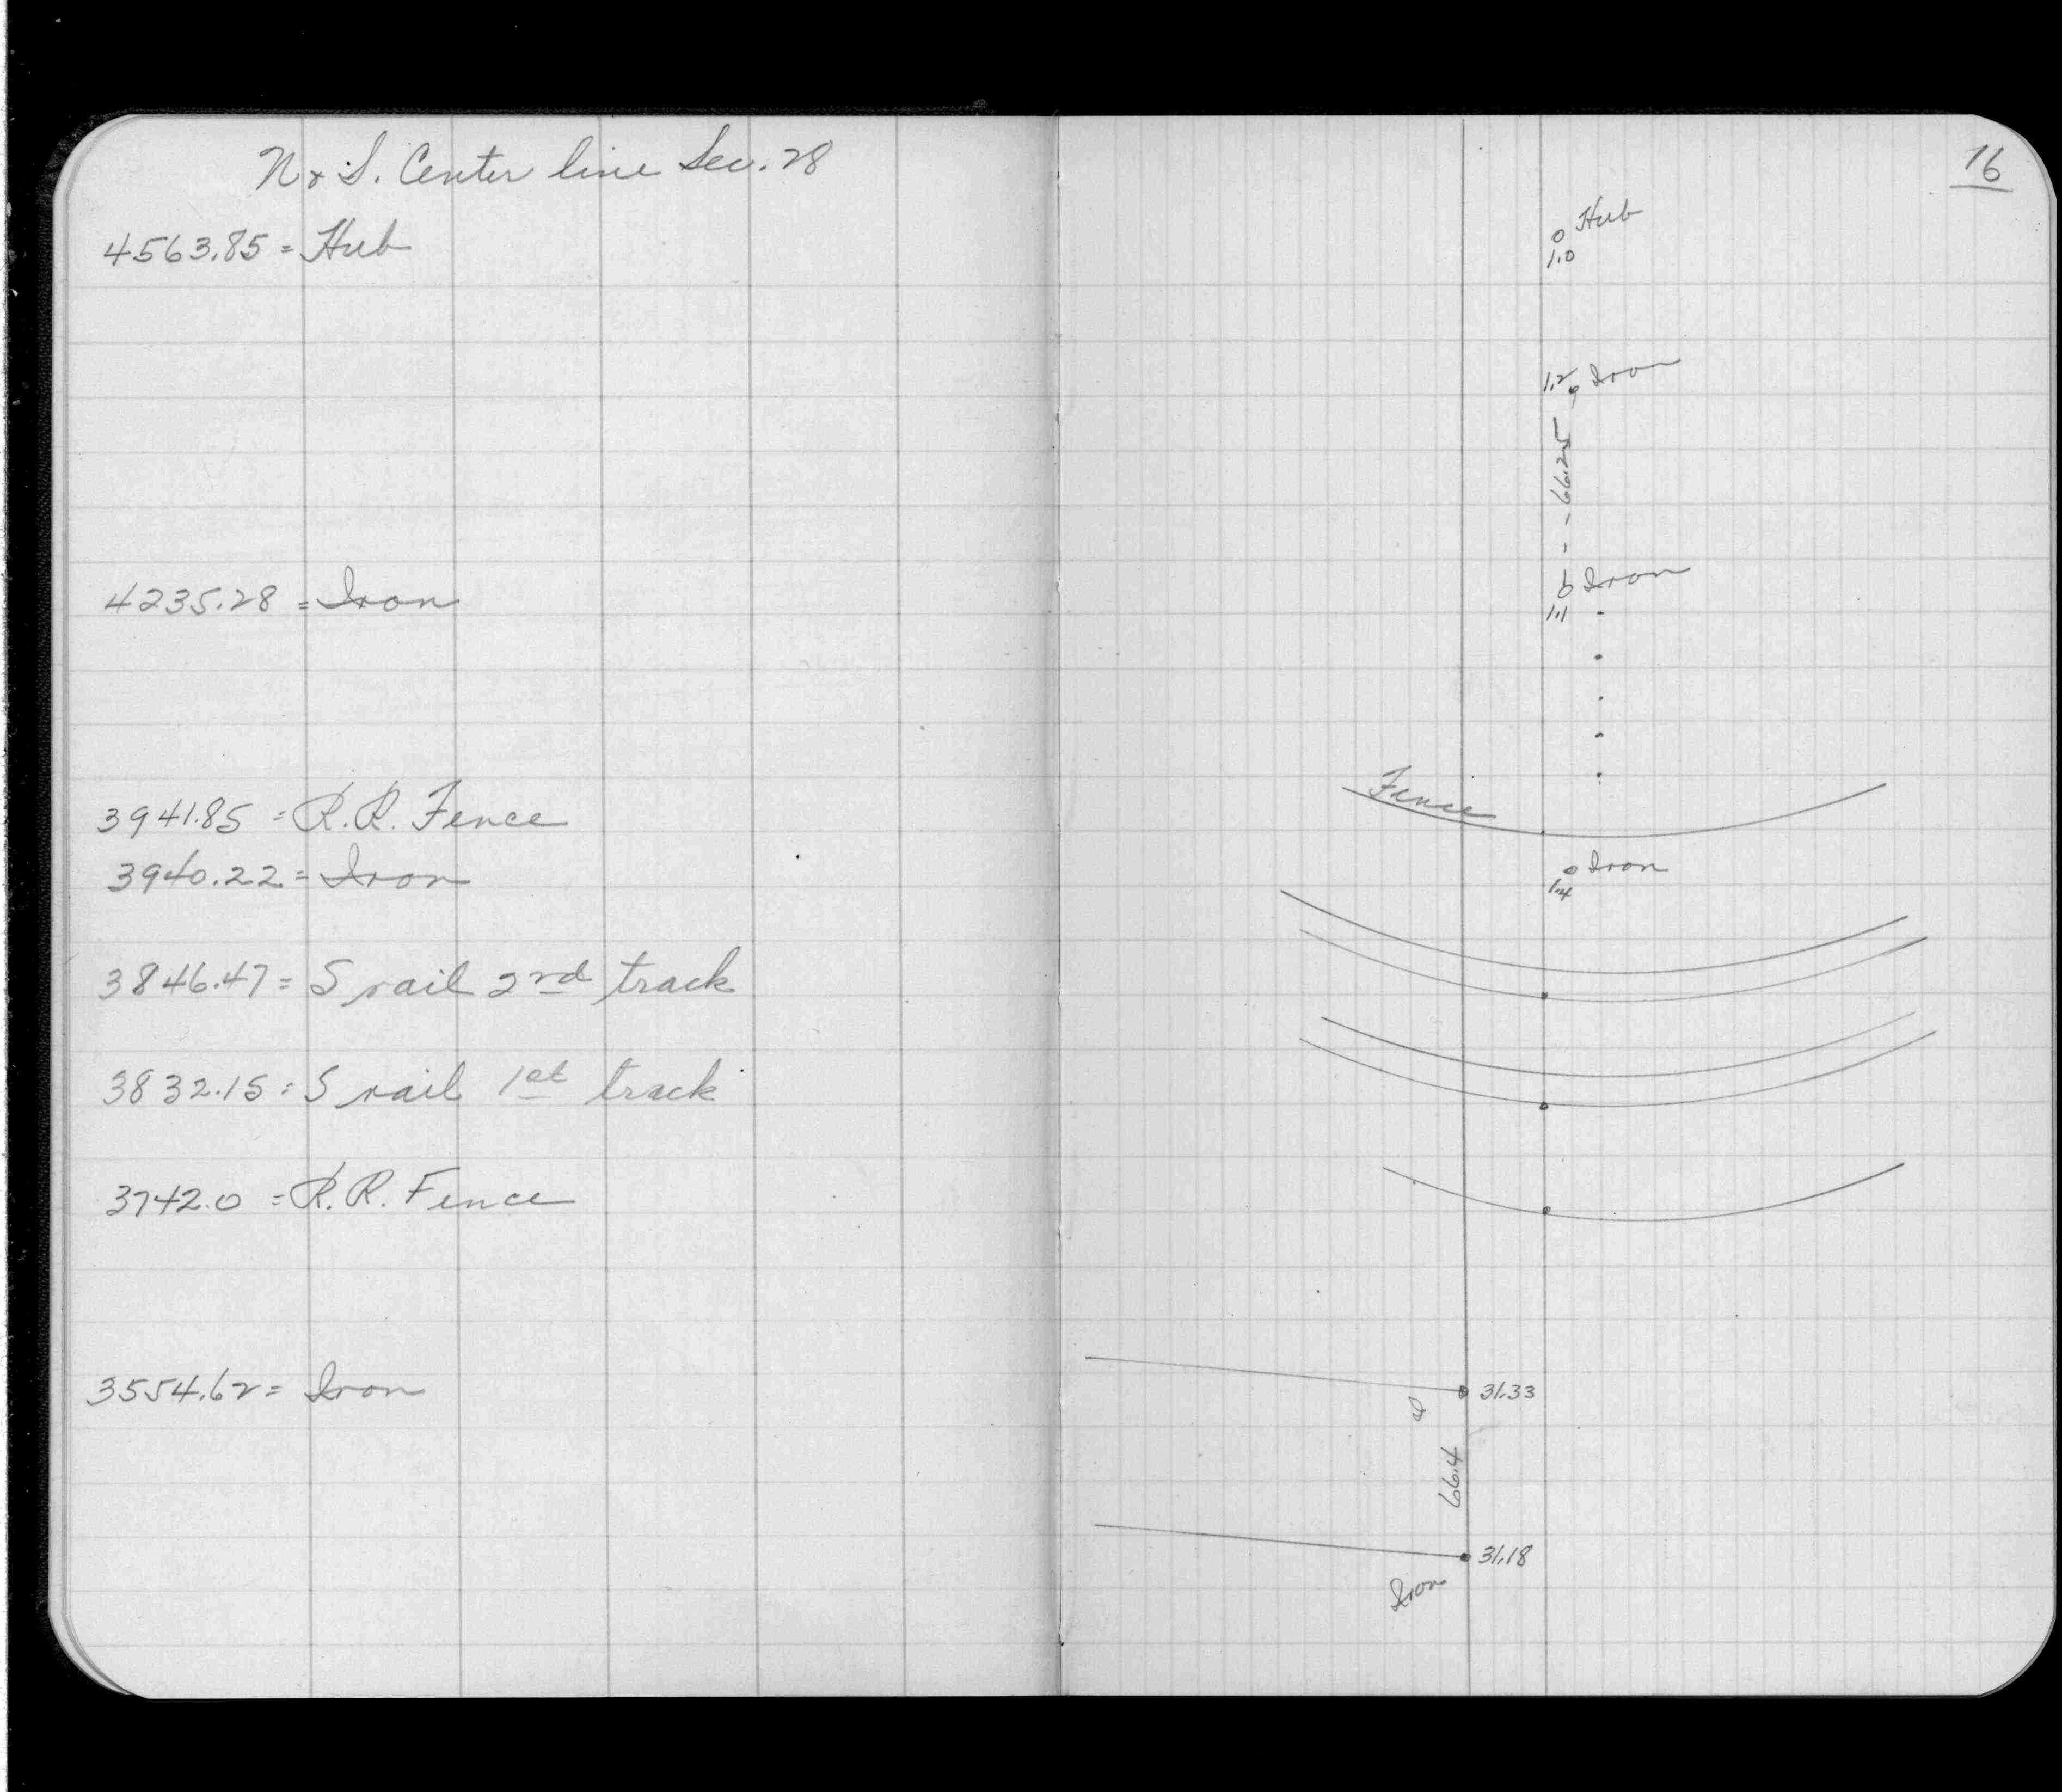 N & S. Center line Sec. 28
4563.85 = Hub
4235.28 = Iron
3941.85 = R.R. Fence
3940.22 = Iron
3846.47 = S rail 2nd track
3832.15 = S rail 1st track
3742.0 = R.R. Fence
3554.62 = Iron
16
Hub
1.0
1.2 Iron
66.25
Iron
1.1
Fence
Iron
1.4
31.33
66.4
31.18
Iron